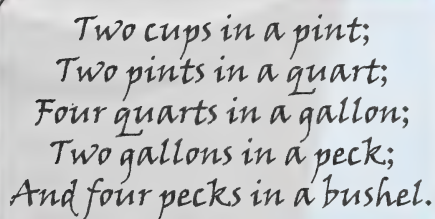 Two cups in a pint;
Two pints in a quart;
Four quarts in a gallon;
Two gallons in a peck;
And four pecks in a bushel.